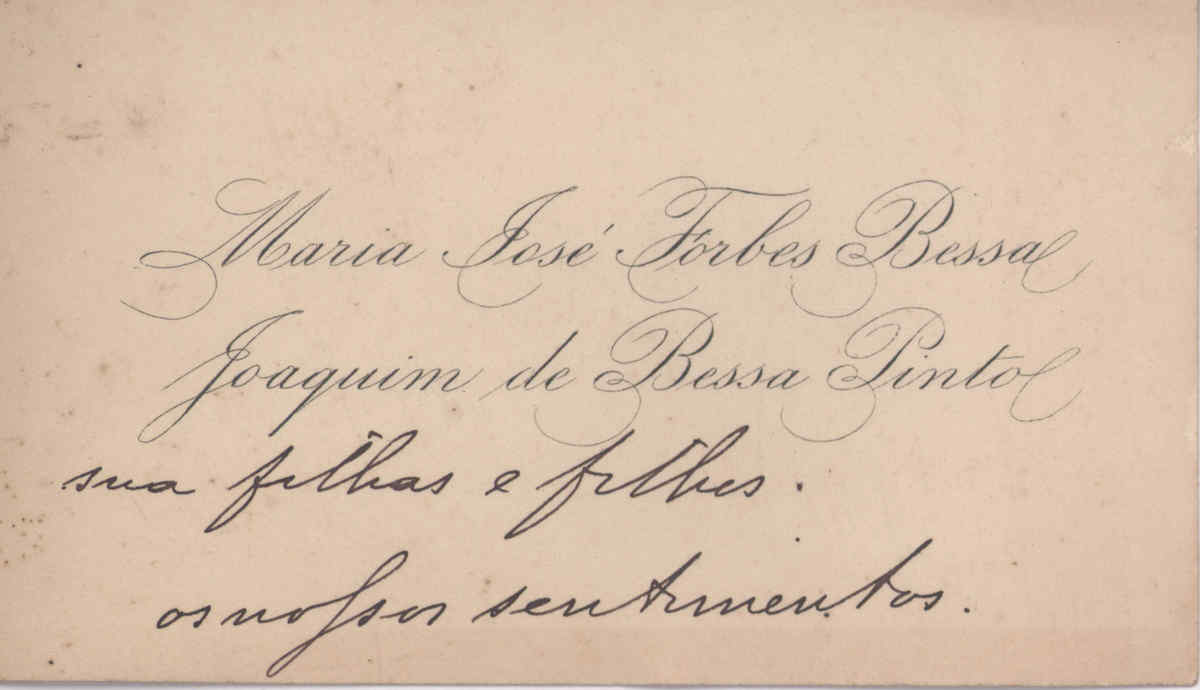 Maria José Forbes Bessa
Joaquim de Bessa Pinto
sua filhas e filhos.
os nossos sentimentos.